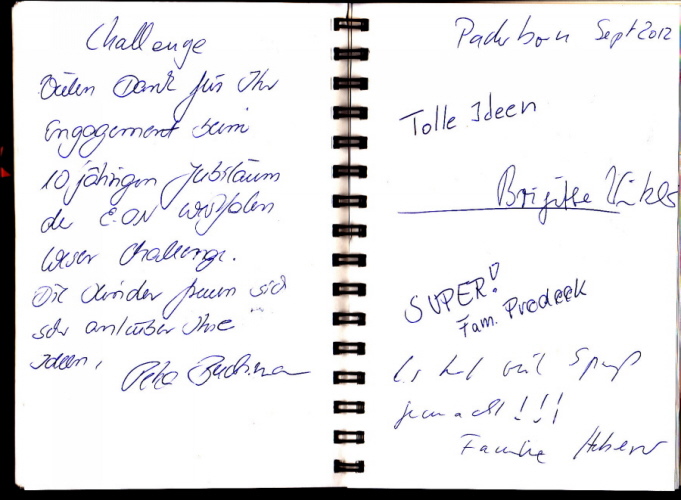 Challenge
Vielen Dank für Ihr
Engagement beim
10 jährigen Jubiläum
der E.ON Westfalen
Weser Challenge.
Die Kinder freuen sich
sehr an/über Ihre
Ideen,
Petra
Paderborn Sept 2012
Tolle Ideen
Brigitte
SUPER!
Fam. Predeek
Es hat viel Spaß
gemacht!!!
Familie